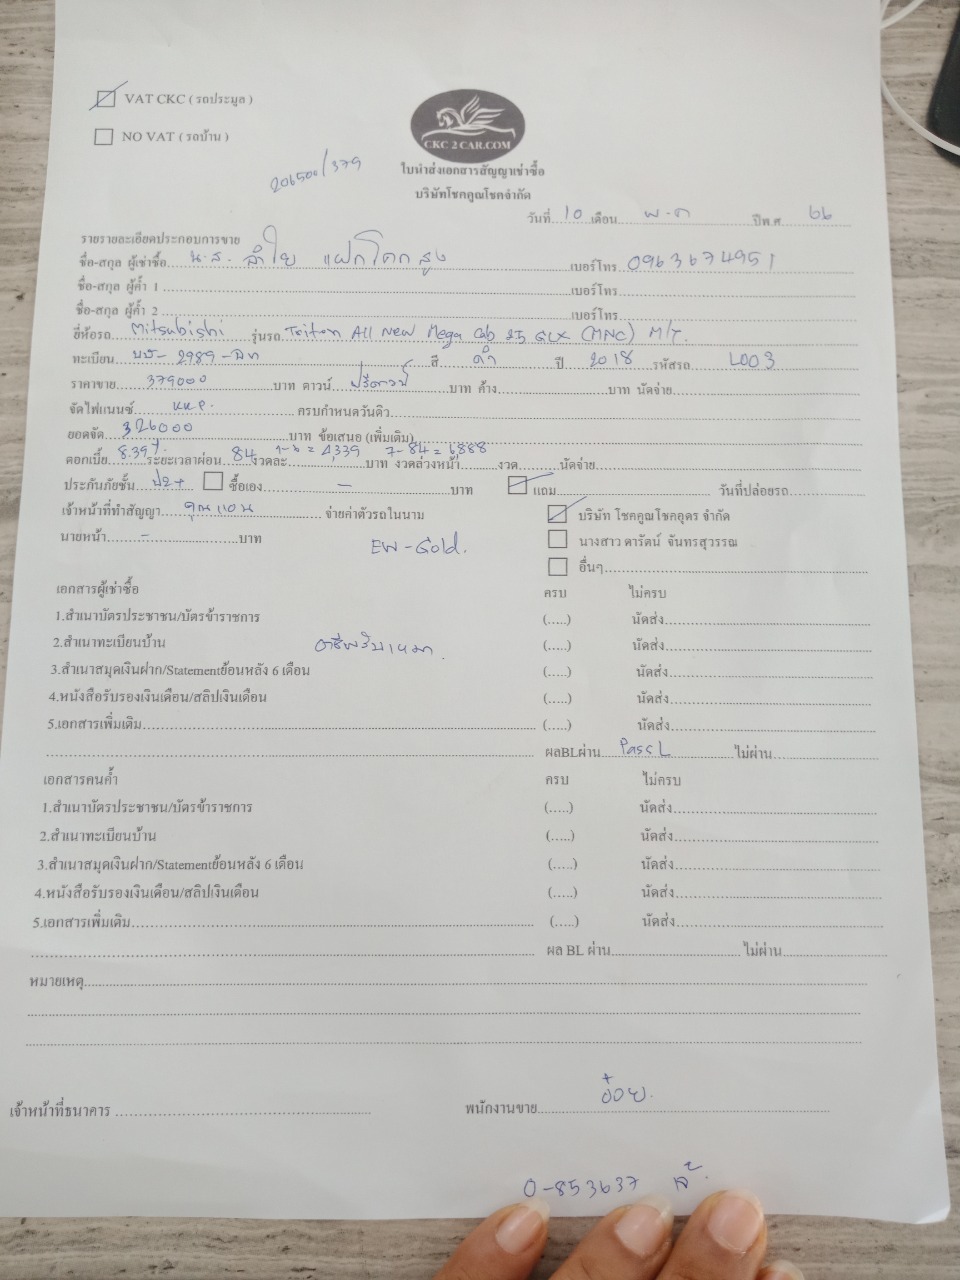 VAT CKC ( รถประมูล )
NO VAT ( รถบ้าน )
CKC 2 CAR.COM
ใบนำส่งเอกสารสัญญาเช่าซื้อ
206500/379
บริษัทโชคคูณโชคจำกัด
วันที่ 10 เดือน พ.ค ปีพ.ศ. 66
รายรายละเอียดประกอบการขาย
ชื่อ-สกุล ผู้เช่าซื้อ น.ส. ลำใย แฝกโคกสูง เบอร์โทร 0963674951
ชื่อ-สกุล ผู้ค้ำ 1 เบอร์โทร
ชื่อ-สกุล ผู้ค้ำ 2 เบอร์โทร
ยี่ห้อรถ Mitsubishi รุ่นรถ Triton All New Mega Cab 2.5 GLX (MNC) M/T.
ทะเบียน 2989 สี ดำ ปี 2018 รหัสรถ L003
ราคาขาย 379000 บาท ดาวน์ ฟรีดาวน์ บาท ค้าง บาท นัดจ่าย
จัดไฟแนนซ์ KKP. ครบกำหนดวันดิว
ยอดจัด 326000 บาท ข้อเสนอ (เพิ่มเติม)
ดอกเบี้ย 8.39% ระยะเวลาผ่อน 84 งวดละ 1-6 = 4,339 7-84 = 6888 บาท งวดล่วงหน้า งวด นัดจ่าย
ประกันภัยชั้น ป2+ ซื้อเอง - บาท แถม วันที่ปล่อยรถ
เจ้าหน้าที่ทำสัญญา คุณแอน จ่ายค่าตัวรถในนาม บริษัท โชคคูณโชคอุดร จำกัด
นายหน้า - บาท EW-Gold. นางสาว ดารัตน์ จันทรสุวรรณ
อื่นๆ
เอกสารผู้เช่าซื้อ ครบ ไม่ครบ
1.สำเนาบัตรประชาชน/บัตรข้าราชการ (.....) นัดส่ง
2.สำเนาทะเบียนบ้าน อาชีพรับเหมา. (.....) นัดส่ง
3.สำเนาสมุดเงินฝาก/Statementย้อนหลัง 6 เดือน (.....) นัดส่ง
4.หนังสือรับรองเงินเดือน/สลิปเงินเดือน (.....) นัดส่ง
5.เอกสารเพิ่มเติม (.....) นัดส่ง
ผลBLผ่าน Pass L ไม่ผ่าน
เอกสารคนค้ำ ครบ ไม่ครบ
1.สำเนาบัตรประชาชน/บัตรข้าราชการ (.....) นัดส่ง
2.สำเนาทะเบียนบ้าน (.....) นัดส่ง
3.สำเนาสมุดเงินฝาก/Statementย้อนหลัง 6 เดือน (.....) นัดส่ง
4.หนังสือรับรองเงินเดือน/สลิปเงินเดือน (.....) นัดส่ง
5.เอกสารเพิ่มเติม (.....) นัดส่ง
ผล BL ผ่าน ไม่ผ่าน
หมายเหตุ
เจ้าหน้าที่ธนาคาร พนักงานขาย อ๋อย.
0-853637